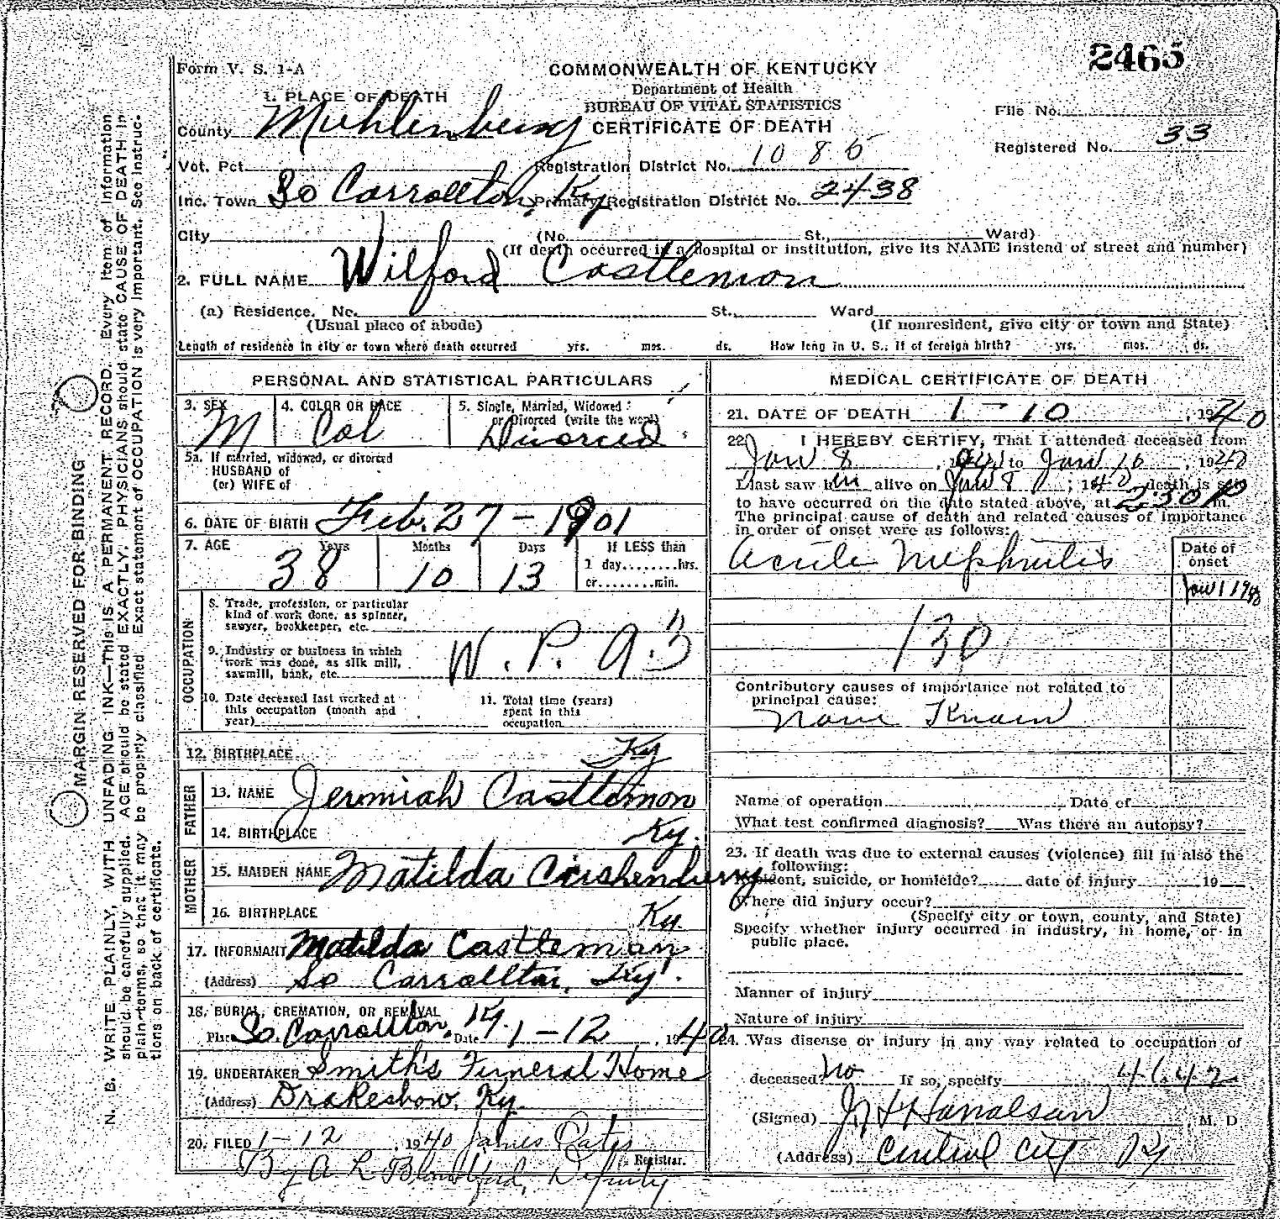 2465
Form V. S. 1-A
COMMONWEALTH OF KENTUCKY
Department of Health
BUREAU OF VITAL STATISTICS
CERTIFICATE OF DEATH
File No.
Registered No. 33
1. PLACE OF DEATH
County Muhlenberg
Vot. Pct. Registration District No. 1086
Inc. Town So Carrollton, Ky Primary Registration District No. 2438
City (No. St., Ward)
(If death occurred in a hospital or institution, give its NAME instead of street and number)
2. FULL NAME Wilford Castlemon
(a) Residence. No. St., Ward
(Usual place of abode) (If nonresident, give city or town and State)
Length of residence in city or town where death occurred yrs. mos. ds. How long in U. S., if of foreign birth? yrs. mos. ds.
PERSONAL AND STATISTICAL PARTICULARS
3. SEX M
4. COLOR OR RACE Col
5. Single, Married, Widowed or Divorced (write the word) Divorced
5a. If married, widowed, or divorced
HUSBAND of
(or) WIFE of
6. DATE OF BIRTH Feb. 27 - 1901
7. AGE Years Months Days If LESS than
38 10 13 1 day........hrs.
or........min.
OCCUPATION
8. Trade, profession, or particular
kind of work done, as spinner,
sawyer, bookkeeper, etc.
9. Industry or business in which
work was done, as silk mill,
sawmill, bank, etc. W. P. A.
10. Date deceased last worked at
this occupation (month and
year)
11. Total time (years)
spent in this
occupation
12. BIRTHPLACE Ky
FATHER
13. NAME Jermiah Castlemon
14. BIRTHPLACE Ky.
MOTHER
15. MAIDEN NAME Matilda
16. BIRTHPLACE Ky.
17. INFORMANT Matilda Castleman
(Address) So Carrollton, Ky.
18. BURIAL, CREMATION, OR REMOVAL
Place So. Carrollton, Ky. Date 1-12, 1940
19. UNDERTAKER Smith's Funeral Home
(Address) Drakesboro, Ky.
20. FILED 1-12 1940 James Oates
Registrar.
By A L Blandford, Deputy
MEDICAL CERTIFICATE OF DEATH
21. DATE OF DEATH 1-10, 1940
22. I HEREBY CERTIFY, That I attended deceased from
Jan 8, to Jan 10, 1940
I last saw him alive on Jan 8, 1940, death is said
to have occurred on the date stated above, at 2:30 P m.
The principal cause of death and related causes of importance
in order of onset were as follows:
Acute Nephritis
Date of
onset
Jan 1 1940
130
Contributory causes of importance not related to
principal cause:
None Known
Name of operation Date of
What test confirmed diagnosis? Was there an autopsy?
23. If death was due to external causes (violence) fill in also the
following:
Accident, suicide, or homicide? date of injury 19
Where did injury occur?
(Specify city or town, county, and State)
Specify whether injury occurred in industry, in home, or in
public place.
Manner of injury
Nature of injury
24. Was disease or injury in any way related to occupation of
deceased? No If so, specify
(Signed) M. D
(Address) Central City Ky
MARGIN RESERVED FOR BINDING
N. B. WRITE PLAINLY, WITH UNFADING INK—THIS IS A PERMANENT RECORD. Every item of information
should be carefully supplied. AGE should be stated EXACTLY. PHYSICIANS should state CAUSE OF DEATH in
plain terms, so that it may be properly classified. Exact statement of OCCUPATION is very important. See Instruc-
tions on back of certificate.